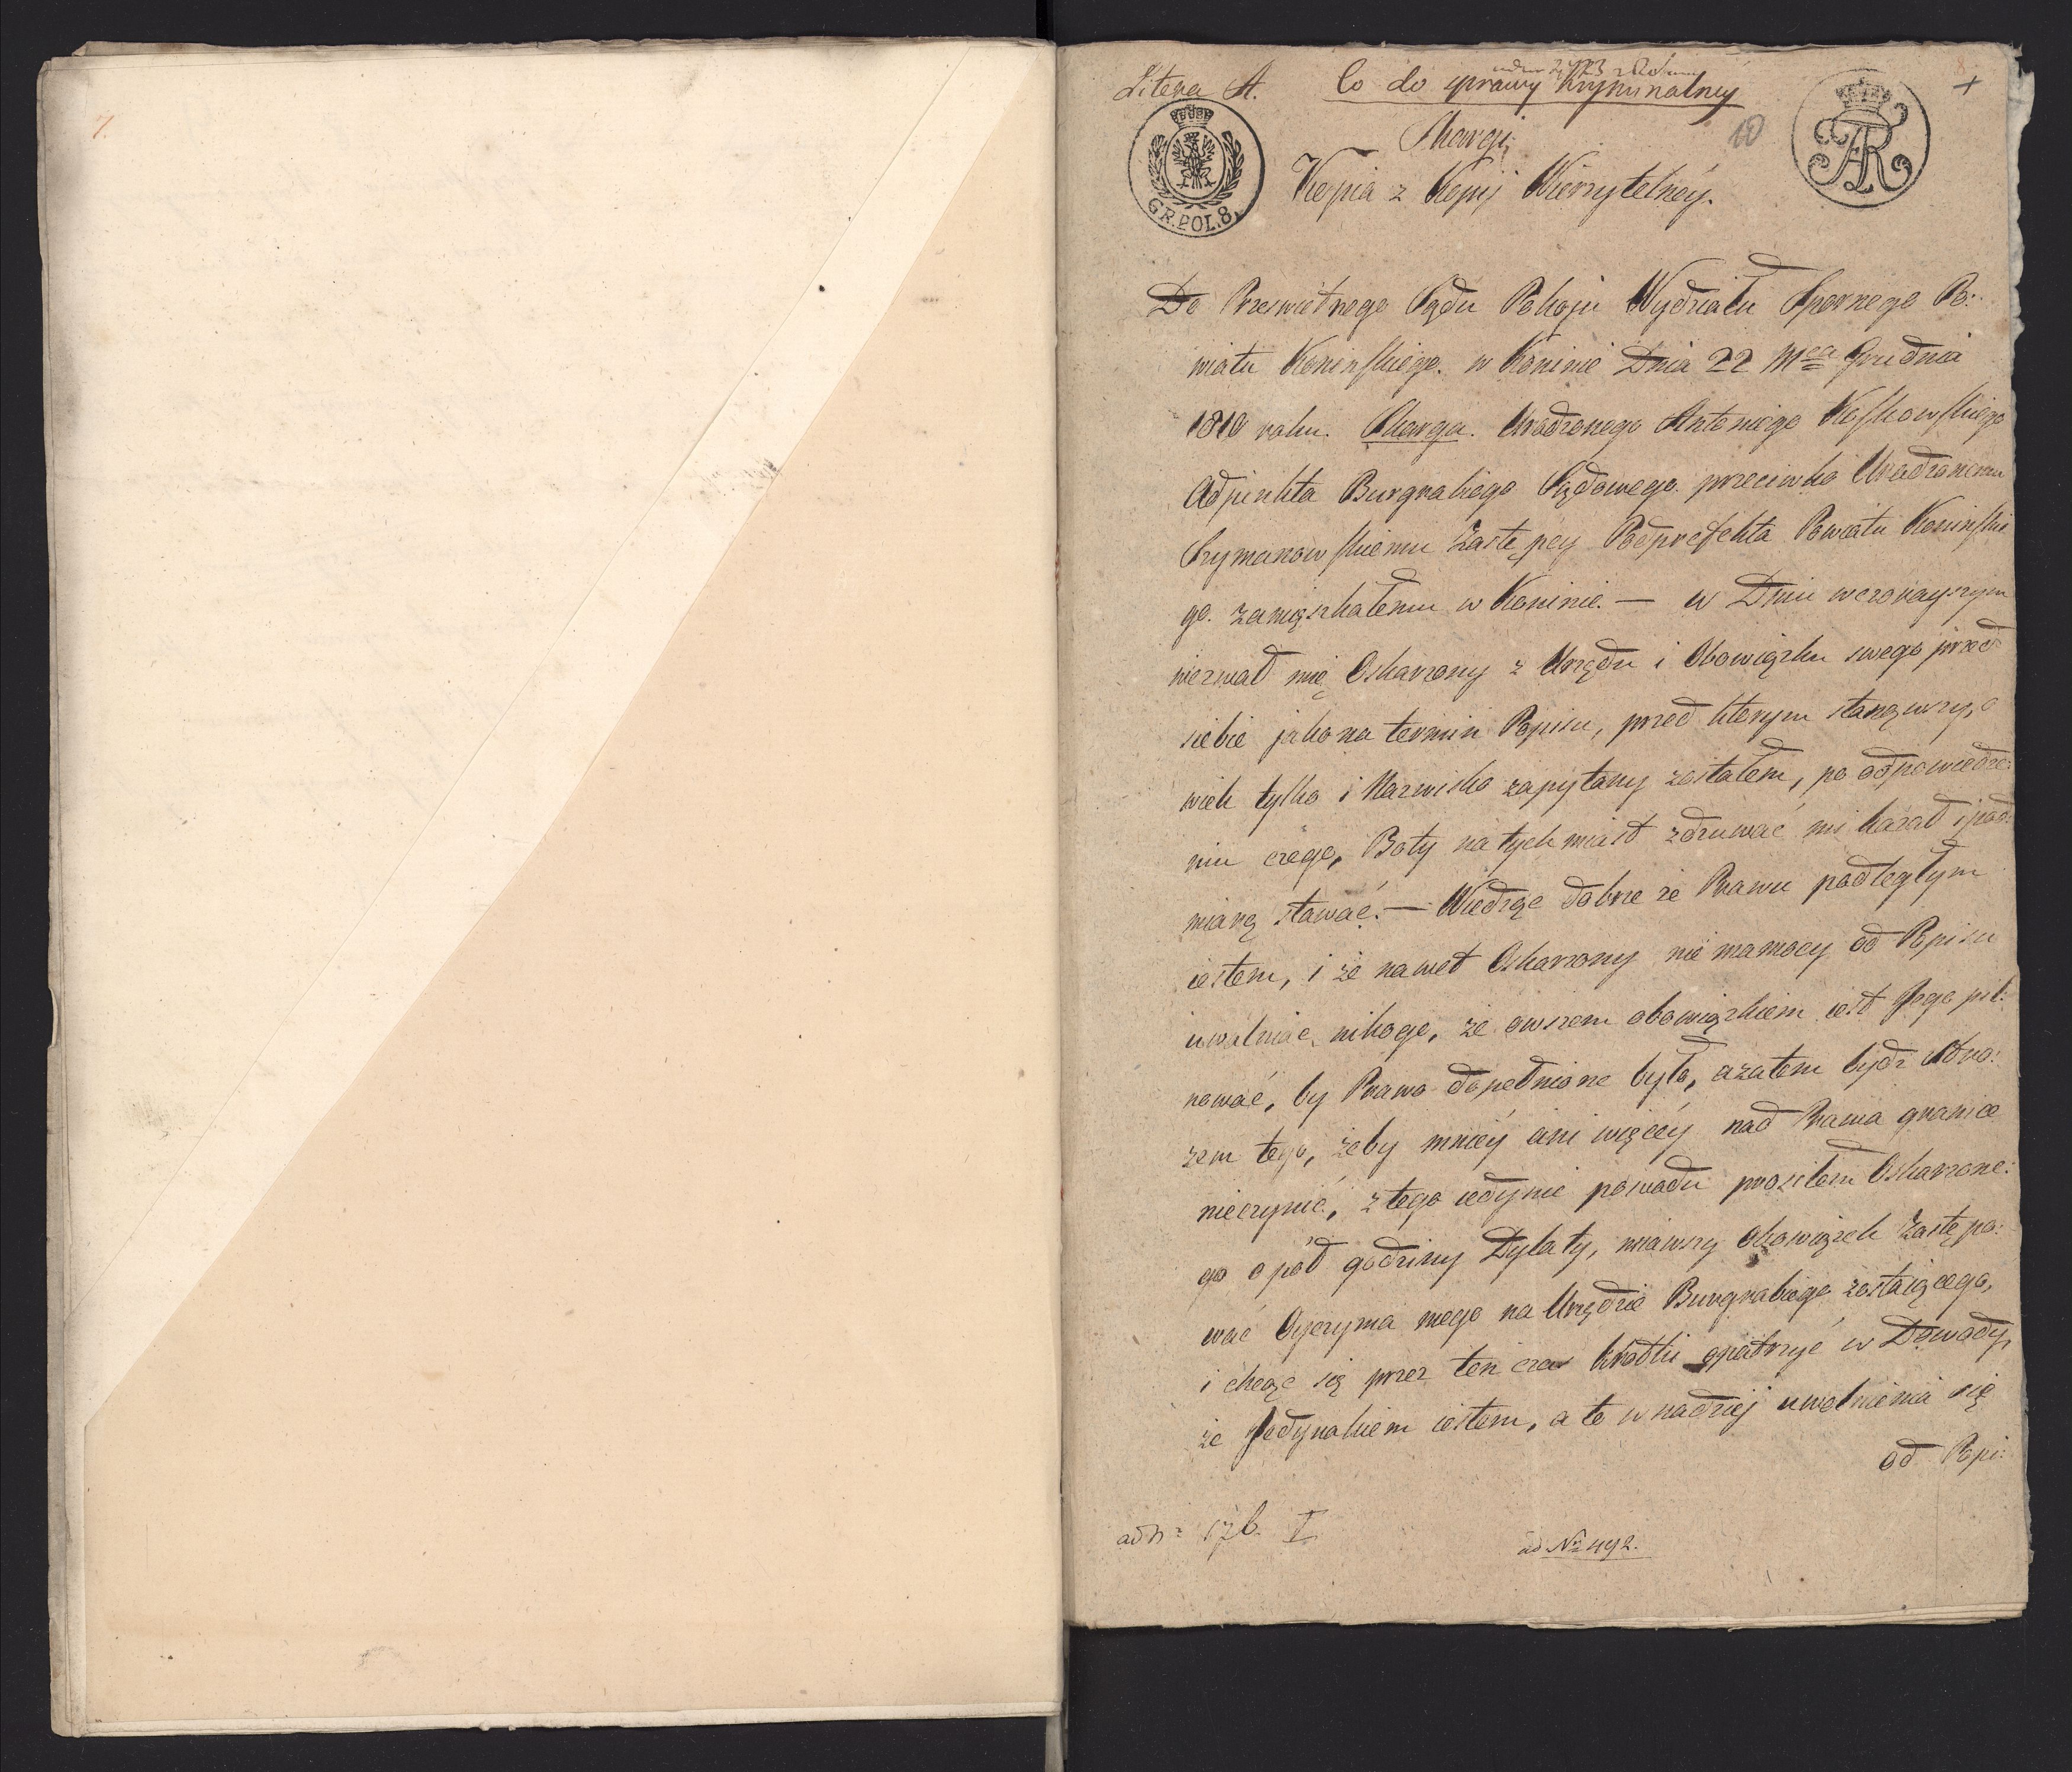 7.
Litera A.
Co do sprawy kryminalney
Skargi
10
Kopia z Kopij Wierzytelnéy.
GR.POL.8.
Do Prześwietnego Sądu Pokoju Wydziału Spornego Po:
wiatu Koninskiego. w Koninie Dnia 22 Mca Grudnia
1810 roku. Skarga. Urodzonego Antoniego Koskowskiego
Adjunkta Burgrabiego Sądowego. przeciwko Urodzonemu
Szymanowskiemu Zastępcy Podprefekta Powiatu Koninskie
go. zamięszkałemu w Koninie. — w Dniu wczorayszym
wezwał mię Oskarzony z Urzędu i Obowiązku swego przed
siebie jako na termin Popisu, przed którym stanąwszy, o
wiek tylko i Nazwisko zapytany zostałem, po odpowiedze:
niu czego, Boty natychmiast zdruwać mi kazał i pod
miarę stawać. — Wiedząc dobrze że Prawu podległym
iestem, i że nawet Oskarzony nie ma mocy od Popisu
uwalniać nikogo, że owszem obowiązkiem iest Jego pil:
nować, by Prawo dopełnione było, a zatem bydź Stró:
zem tego, żeby mniéy ani więcéy nad Prawa granice
nieczynić, z tego iedynie powodu prosiłem Oskarzone:
go o pół godziny Dylaty, miawszy Obowiązek Zastępo:
wać Oyczyma mego na Urzędzie Burgrabiego zostaiącego,
i chcąc się przez ten czas krótki opatrzyć w Dowody,
że Jedynakiem iestem, a to w nadziej uwolnienia się
od Popi:
ad N: 176. I
ad No 492.